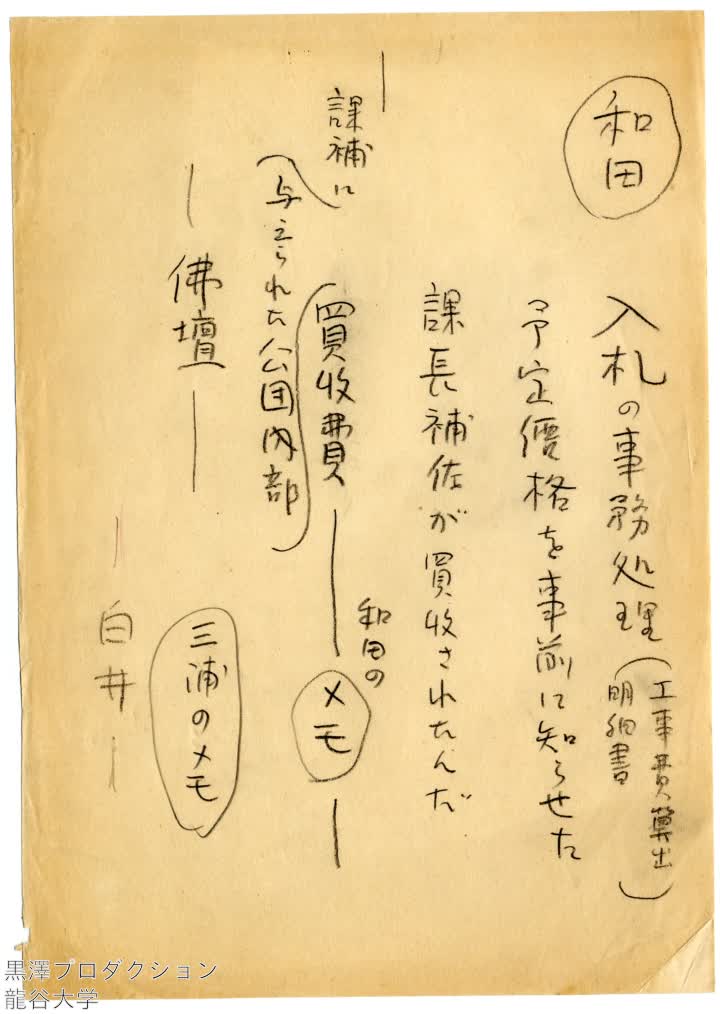 和田
入札の事務処理(工事費算出
明細書)
予定價格を事前に知らせた
課長補佐が買收されたんだ
課補に
買收費――和田の
メモ――
(与えられた公団内部)
―佛壇―
三浦のメモ
―白井―
黒澤プロダクション
龍谷大学